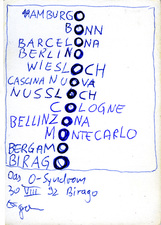 HAMBURGO
BONN
BARCELONA
BERLINO
WIESLOCH
CASCINA NUOVA
NUSSLOCH
COLOGNE
BELLINZONA
MONTECARLO
BERGAMO
BIRAGO
Das O-Syndrom
30 VIII 92 Birago